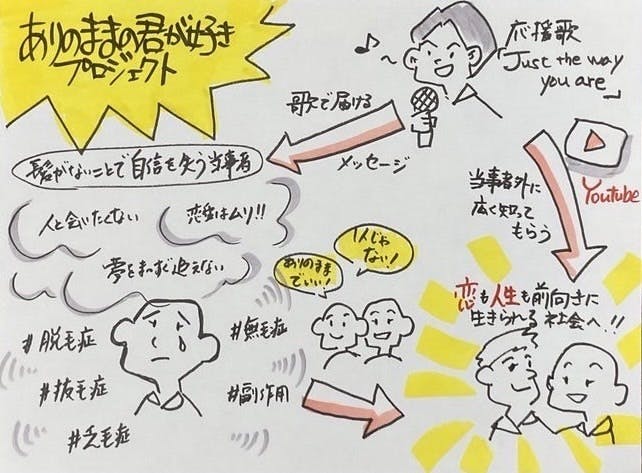 ありのままの君が好き
プロジェクト
応援歌
「Just the way
you are」
歌で届ける
メッセージ
髪がないことで自信を失う当事者
人と会いたくない
恋愛はムリ!!
夢をまっすぐ追えない
Youtube
当事者外に
広く知って
もらう
1人じゃ
ない!
ありのまま
でいい!
恋も人生も前向きに
生きられる社会へ!!
#脱毛症
#無毛症
#抜毛症
#副作用
#乏毛症